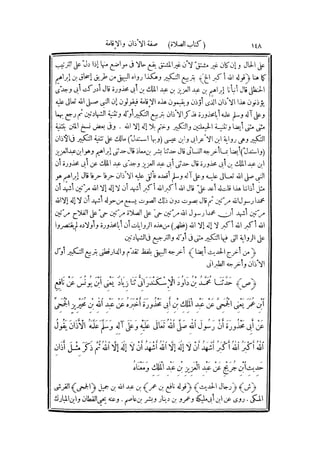 ١٤٨ (كتاب الصلاة) صفة الأذان والإقامة
على الحال و إن كان غير مشتق لأن غير المشتق يقع حالا فى مواضع منها إذا دل على الترتيب
كما هنا (قوله الله أكبر الخ) بتربيع التكبير وهكذا رواه البيهقى من طريق إسحاق بن إبراهيم
الحنظلى قال أنبأنا إبراهيم بن عبد العزيز بن عبد الملك بن أبى محذورة قال أدركت أبى وجدى
يؤذنون هذا الأذان الذى أؤذن ويقيمون هذه الإقامة فيقولون إن النبى صلى الله تعالى عليه
وعلى آله وسلم علمه أبا محذورة فذكر الأذان بتربيع التكبير أوله وتثنية الشهادتين ثم رجع بهما
مثنى مثنى أيضا وتثنية الحيعلتين والتكبير وختم بلا إله إلا الله. وفى بعض نسخ المتن بتثنية
التكبير وهى رواية ابن الأعرابى وابن عيسى (وبها استدل) مالك على تثنية التكبير فى الأذان
(واستدل) أيضا بما أخرجه النسائى قال حدثنا بشر بن معاذ قال حدثنى إبراهيم وهو ابن عبد العزيز
ابن عبد الملك بن أبى محذورة قال حدثنى أبى عبد العزيز وجدى عبد الملك عن أبى محذورة أن
النبى صلى الله تعالى عليه وعلى آله وسلم أقعده فألقى عليه الأذان حرفا حرفا قال إبراهيم هو
مثل أذاننا هذا قلت له أعد على قال الله أكبر الله أكبر أشهد أن لا إله إلا الله مرتين أشهد أن
محمدا رسول الله مرتين ثم قال بصوت دون ذلك الصوت يسمع من حوله أشهد أن لا إله إلا الله
مرتين أشهد أن محمدا رسول الله مرتين حى على الصلاة مرتين حى على الفلاح مرتين
الله أكبر الله أكبر لا إله إلا الله (فظهر) من هذه الروايات أن أبا محذورة وأولاده لم يقتصروا
على الرواية التى فيها التكبير مثنى فى أوله والترجيع فى الشهادتين
(من أخرج الحديث أيضا) أخرجه البيهقى بلفظ تقدم والدارقطنى بتربيع التكبير أول
الأذان وأخرجه الطبرانى
(ص) حَدَّثَنَا مُحَمَّدُ بْنُ دَاوُدَ الْإِسْكَنْدَرَانِيُّ ثَنَا زِيَادٌ يَعْنِي ابْنَ يُونُسَ عَنْ نَافِعِ
ابْنِ عُمَرَ يَعْنِي الْجُمَحِيَّ عَنْ عَبْدِ الْمَلِكِ بْنِ أَبِي مَحْذُورَةَ أَخْبَرَهُ عَنْ عَبْدِ اللهِ بْنِ مُحَيْرِيزٍ الْجُمَحِيِّ
عَنْ أَبِي مَحْذُورَةَ أَنَّ رَسُولَ اللهِ صَلَّى اللهُ تَعَالَى عَلَيْهِ وَعَلَى آلِهِ وَسَلَّمَ عَلَّمَهُ الْأَذَانَ يَقُولُ
اللهُ أَكْبَرُ اللهُ أَكْبَرُ أَشْهَدُ أَنْ لَا إِلَهَ إِلَّا اللهُ أَشْهَدُ أَنْ لَا إِلَهَ إِلَّا اللهُ ثُمَّ ذَكَرَ مِثْلَ أَذَانِ
حَدِيثِ ابْنِ جُرَيْجٍ عَنْ عَبْدِ الْعَزِيزِ بْنِ عَبْدِ الْمَلِكِ وَمَعْنَاهُ
(ش) (رجال الحديث) (قوله نافع بن عمر) بن عبد الله بن جميل (الجمحى) القرشى
المكى. روى عن ابن أبى مليكة وعمرو بن دينار وبشر بن عاصم. وعنه يحيى القطان وابن المبارك